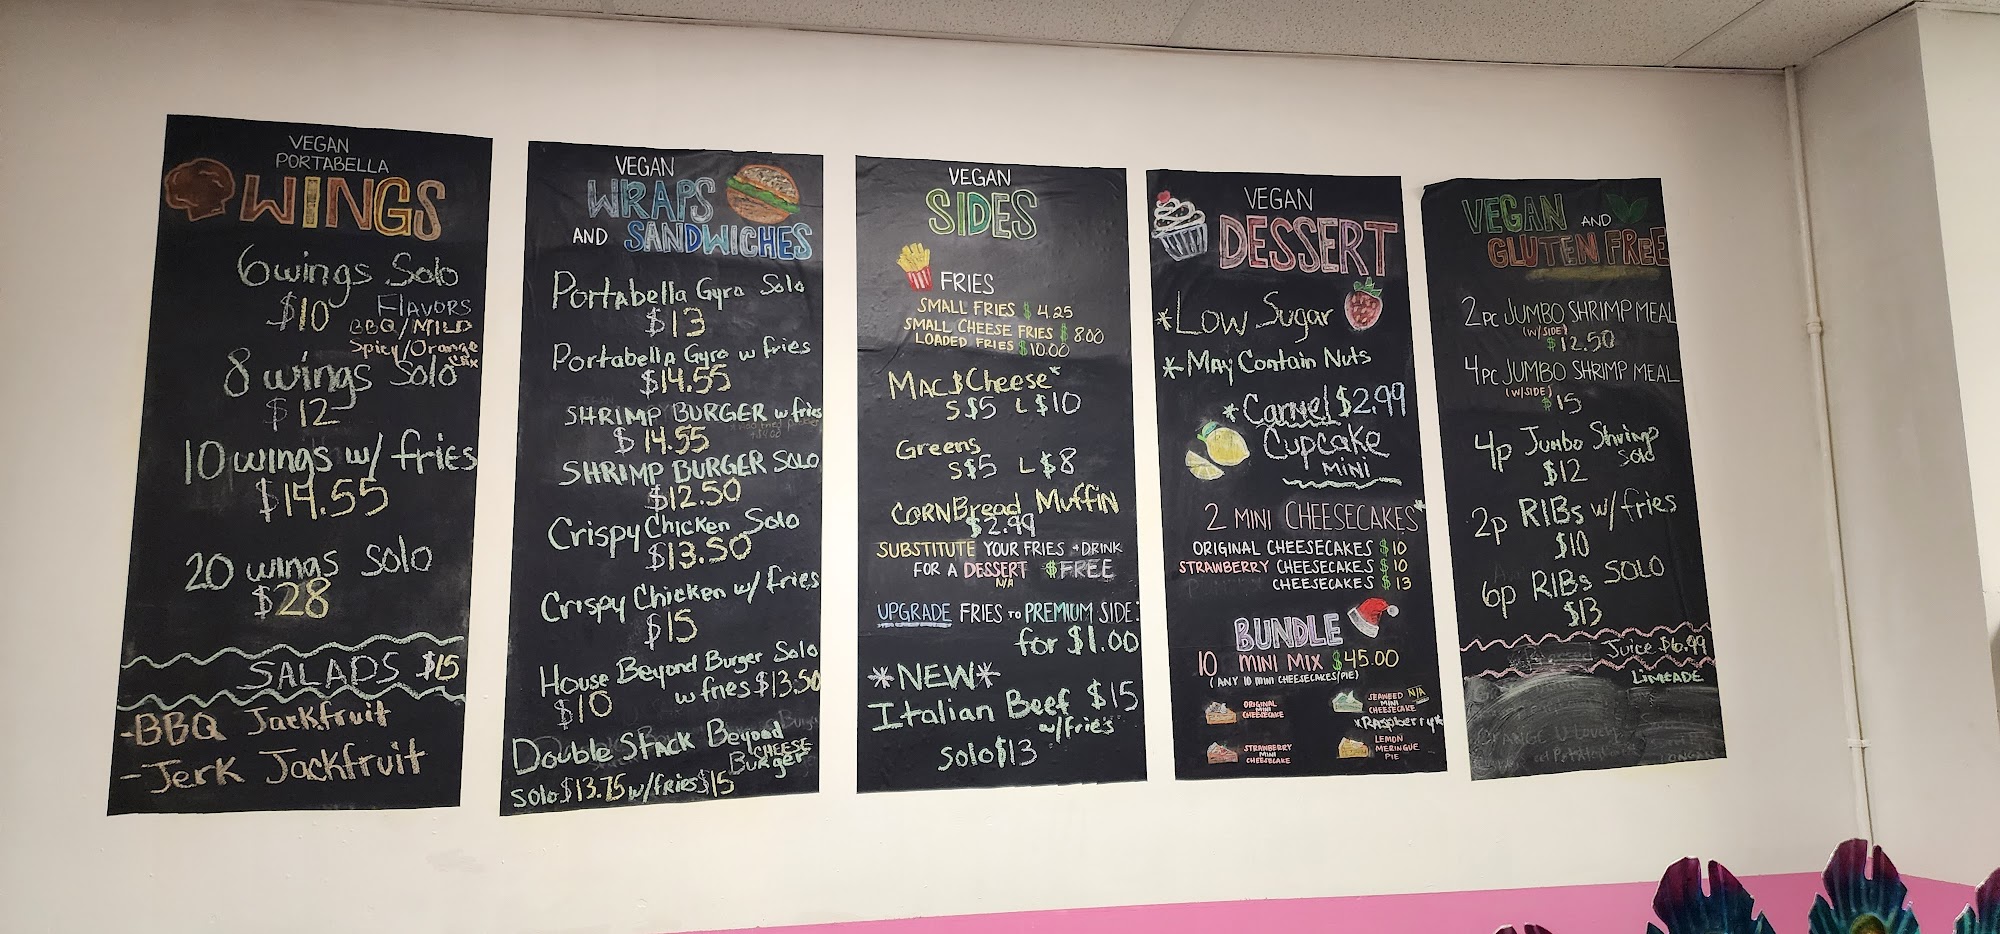 VEGAN
PORTABELLA
WINGS
6 wings Solo
$10
FLAVORS
BBQ/MILD
Spicy/Orange
8 wings Solo
$12
10 wings w/ fries
$14.55
20 wings solo
$28
SALADS $15
-BBQ Jackfruit
-Jerk Jackfruit
VEGAN
WRAPS
AND SANDWICHES
Portabella Gyro Solo
$13
Portabella Gyro w fries
$14.55
SHRIMP BURGER w fries
$14.55
SHRIMP BURGER SOLO
$12.50
Crispy Chicken Solo
$13.50
Crispy Chicken w/ fries
$15
House Beyond Burger Solo
$10 w fries $13.50
Double Stack Beyond
CHEESE
Burger
solo $13.75 w/fries $15
VEGAN
SIDES
FRIES
SMALL FRIES $ 4.25
SMALL CHEESE FRIES $ 8.00
LOADED FRIES $10.00
MAC $ Cheese*
S $5 L $10
Greens
S $5 L $8
CORNBread Muffin
$2.99
SUBSTITUTE YOUR FRIES + DRINK
FOR A DESSERT $FREE
N/A
UPGRADE FRIES TO PREMIUM SIDE:
for $1.00
*NEW*
Italian Beef $15
w/fries
solo $13
VEGAN
DESSERT
*Low Sugar
*May Contain Nuts
*Carvel $2.99
Cupcake
MINI
2 MINI CHEESECAKES*
ORIGINAL CHEESECAKES $ 10
STRAWBERRY CHEESECAKES $ 10
CHEESECAKES $ 13
BUNDLE
10 MINI MIX $45.00
(ANY 10 MINI CHEESECAKES/PIE)
ORIGINAL
MINI
CHEESECAKE
SEAWEED N/A
MINI
CHEESECAKE
*Raspberry*
STRAWBERRY
MINI
CHEESECAKE
LEMON
MERINGUE
PIE
VEGAN AND
GLUTEN FREE
2PC JUMBO SHRIMP MEAL
(W/SIDE)
$12.50
4PC JUMBO SHRIMP MEAL
(W/SIDE)
$15
4p Jumbo Shrimp
Solo
$12
2p RIBs w/fries
$10
6p RIBs SOLO
$13
Juice $6.99
LIMEADE